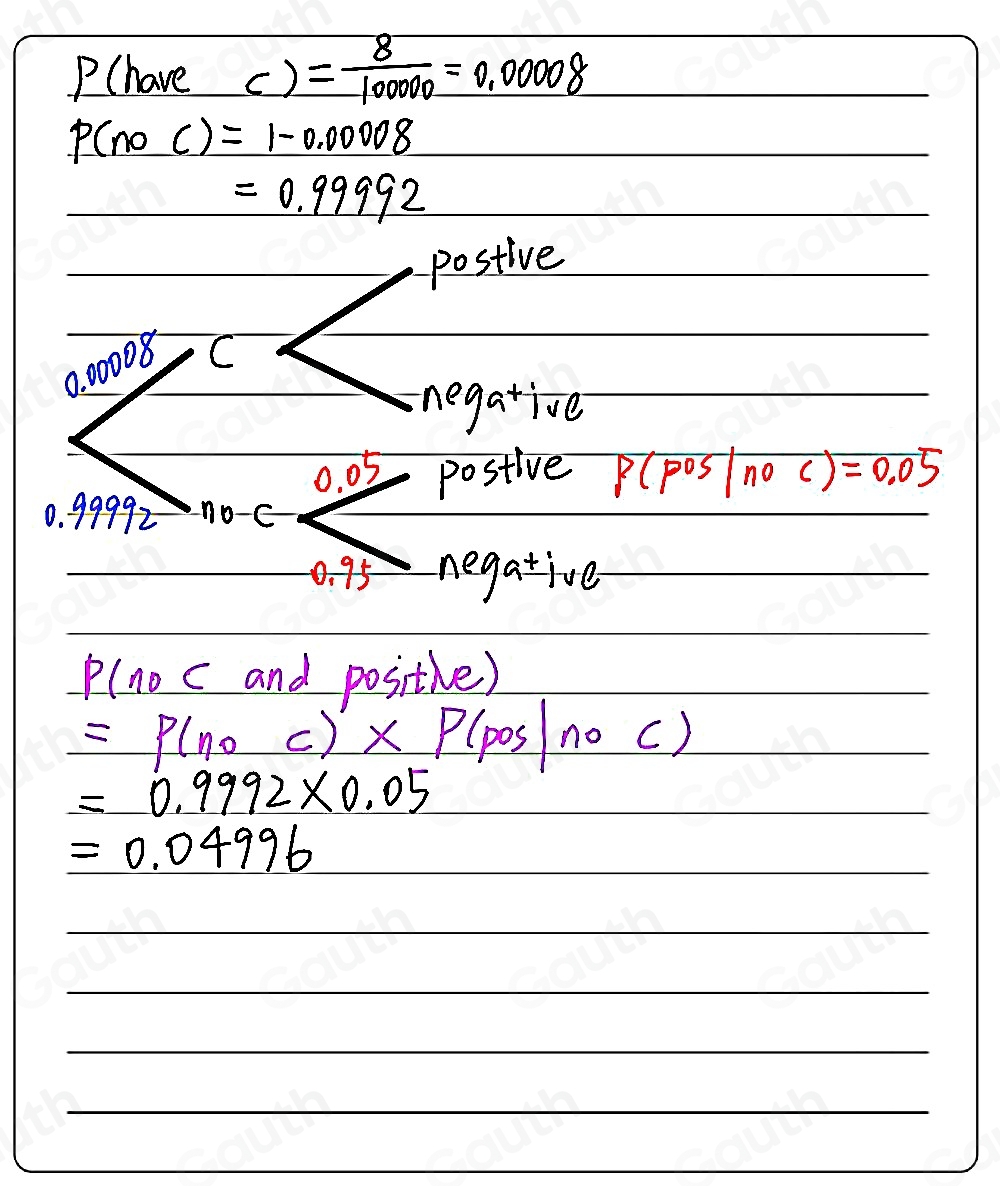 P(have c) = 8/100000 = 0.00008
P(no C) = 1-0.00008
= 0.99992
postive
0.00008 C
negative
0.05 postive P(pos|no c)=0.05
0.99992 no C
0.95 negative
P(no C and positive)
= P(no c) × P(pos|no c)
= 0.9992×0.05
= 0.04996
Gauth